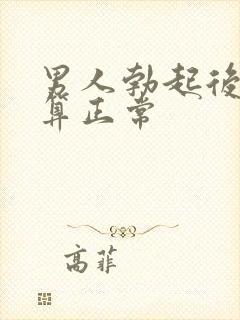 男人勃起後
算正常
高菲